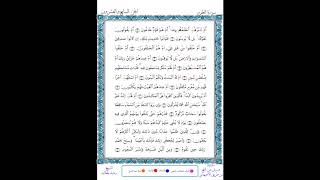 سورة الطور
أَمْ تَأْمُرُهُمْ أَحْلَٰمُهُم بِهَٰذَا أَمْ هُمْ قَوْمٌ طَاغُونَ أَمْ يَقُولُونَ
تَقَوَّلَهُ بَل لَّا يُؤْمِنُونَ فَلْيَأْتُوا بِحَدِيثٍ مِّثْلِهِ إِن كَانُوا صَٰدِقِينَ
أَمْ خُلِقُوا مِنْ غَيْرِ شَيْءٍ أَمْ هُمُ الْخَٰلِقُونَ أَمْ خَلَقُوا
السَّمَٰوَٰتِ وَالْأَرْضَ بَل لَّا يُوقِنُونَ أَمْ عِندَهُمْ خَزَائِنُ رَبِّكَ
أَمْ هُمُ الْمُصَيْطِرُونَ أَمْ لَهُمْ سُلَّمٌ يَسْتَمِعُونَ فِيهِ فَلْيَأْتِ
مُسْتَمِعُهُم بِسُلْطَٰنٍ مُّبِينٍ أَمْ لَهُ الْبَنَٰتُ وَلَكُمُ الْبَنُونَ أَمْ تَسْـَٔلُهُمْ أَجْرًا
فَهُم مِّن مَّغْرَمٍ مُّثْقَلُونَ أَمْ عِندَهُمُ الْغَيْبُ فَهُمْ يَكْتُبُونَ
أَمْ يُرِيدُونَ كَيْدًا فَالَّذِينَ كَفَرُوا هُمُ الْمَكِيدُونَ أَمْ لَهُمْ إِلَٰهٌ
غَيْرُ اللَّهِ سُبْحَٰنَ اللَّهِ عَمَّا يُشْرِكُونَ وَإِن يَرَوْا كِسْفًا مِّنَ السَّمَاءِ
سَاقِطًا يَقُولُوا سَحَابٌ مَّرْكُومٌ فَذَرْهُمْ حَتَّىٰ يُلَٰقُوا يَوْمَهُمُ الَّذِي فِيهِ
يُصْعَقُونَ يَوْمَ لَا يُغْنِي عَنْهُمْ كَيْدُهُمْ شَيْـًٔا وَلَا هُمْ يُنصَرُونَ
وَإِنَّ لِلَّذِينَ ظَلَمُوا عَذَابًا دُونَ ذَٰلِكَ وَلَٰكِنَّ أَكْثَرَهُمْ لَا
يَعْلَمُونَ وَاصْبِرْ لِحُكْمِ رَبِّكَ فَإِنَّكَ بِأَعْيُنِنَا وَسَبِّحْ بِحَمْدِ
رَبِّكَ حِينَ تَقُومُ وَمِنَ اللَّيْلِ فَسَبِّحْهُ وَإِدْبَٰرَ النُّجُومِ